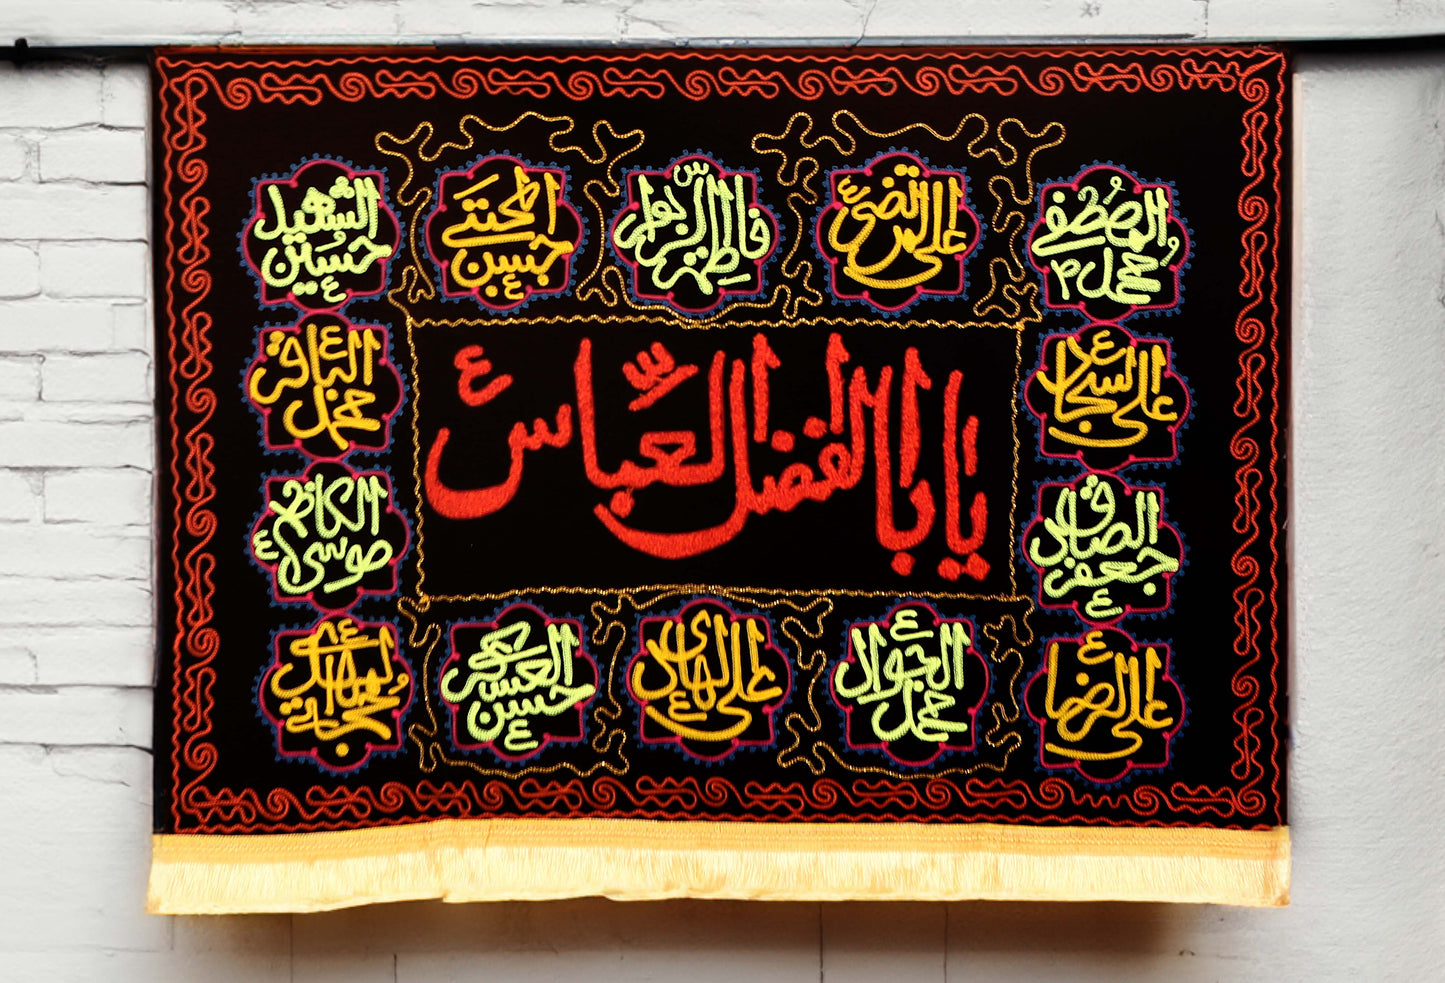 محمد المصطفى ص
علی المرتضى ع
فاطمة الزهراء س
حسن المجتبى ع
حسین الشهید ع
علی السجاد ع
محمد الباقر ع
یا اباالفضل العباس ع
جعفر الصادق ع
موسی الکاظم ع
علی الرضا ع
محمد الجواد ع
علی الهادی ع
حسن العسکری ع
حجة
المهدی
ع